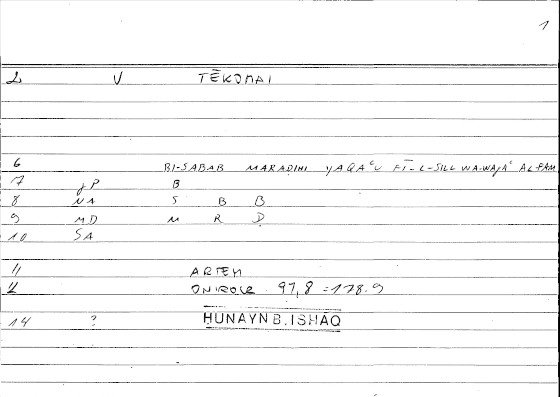 1
2 V TĒKOMAI
6 BI-SABAB MARADIHI YAQAʿU FĪ-L-SILL WA-WAJAʿ AL-FAM
7 JP B
8 NA S B B
9 MD M R Ḍ
10 SA
11 ARTEM
12 ONIROCR 97,8 = 178.9
14 ? HUNAYN B. ISHAQ